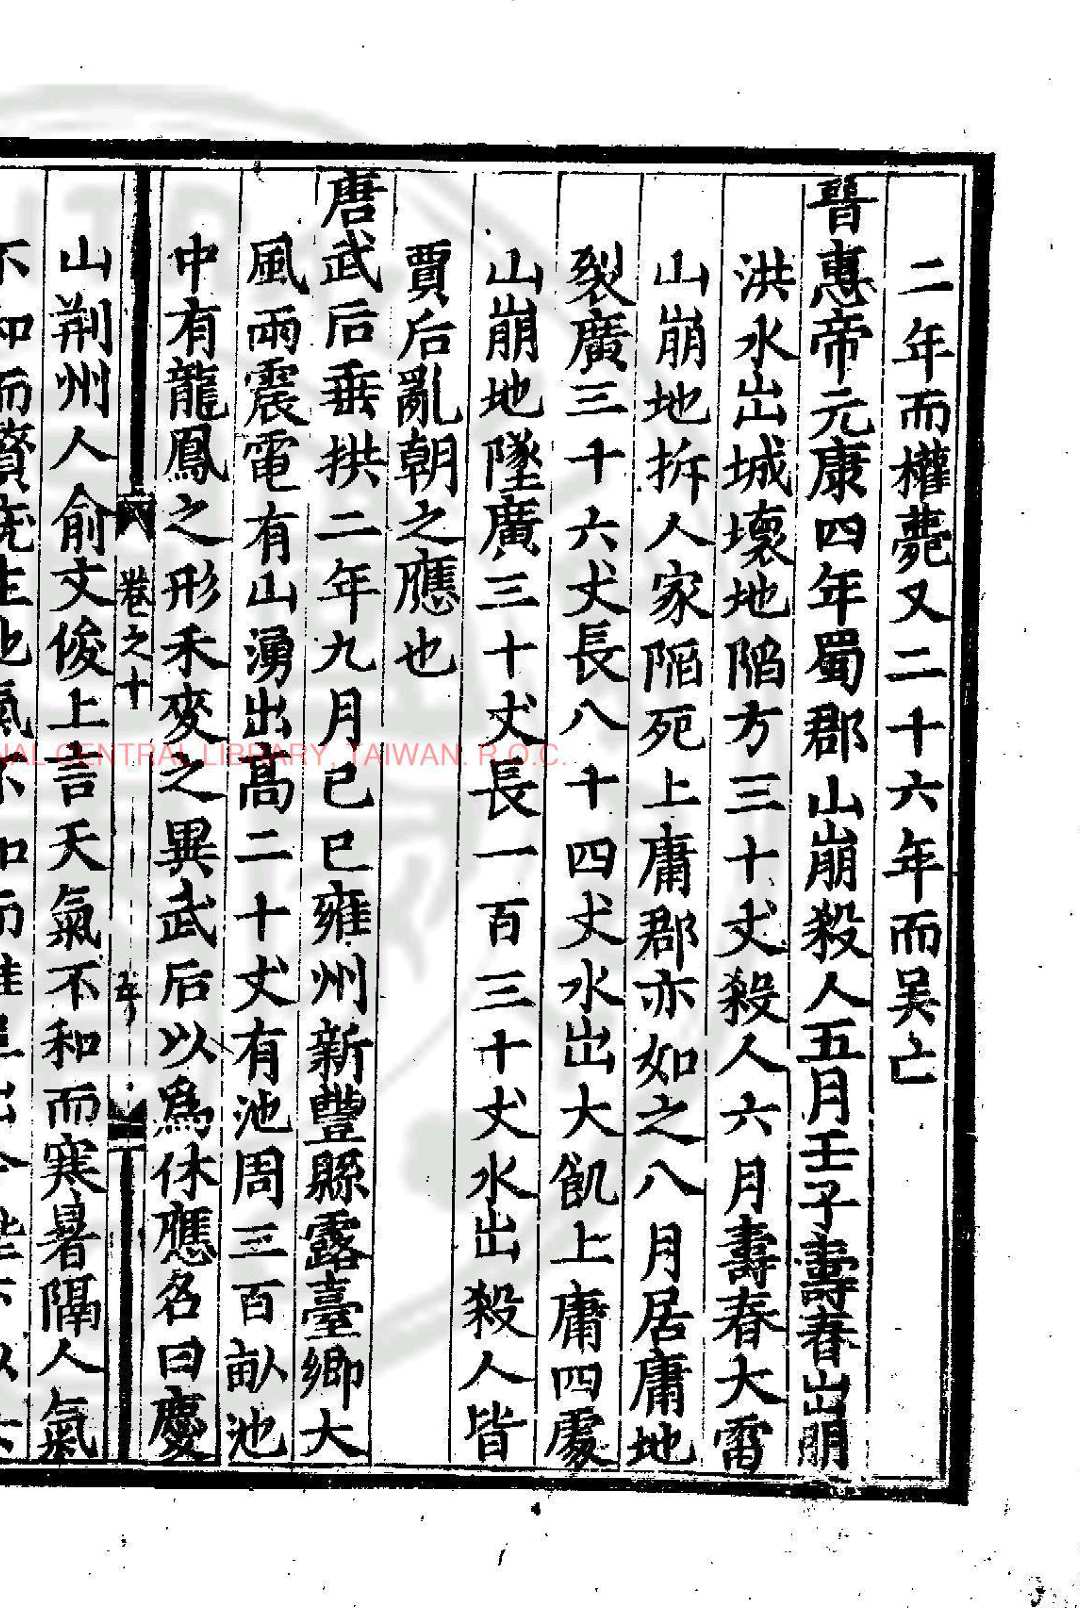 二年而權薨又二十六年而吴亡
晉惠帝元康四年蜀郡山崩殺人五月壬子壽春山崩
洪水出城壞地陷方三十丈殺人六月壽春大雷
山崩地拆人家陷死上庸郡亦如之八月居庸地
裂廣三十六丈長八十四丈水出大飢上庸四處
山崩地墜廣三十丈長一百三十丈水出殺人皆
賈后亂朝之應也
唐武后垂拱二年九月己巳雍州新豐縣露臺鄉大
風雨震電有山湧出高二十丈有池周三百畝池
中有龍鳳之形禾麥之異武后以為休應名曰慶
卷之十
五
山荆州人俞文俊上言天氣不和而寒暑隔人氣
不和而贅疣生地氣不和而堆阜出今陛下以女
NAL CENTRAL LIBRARY, TAIWAN. R.O.C.